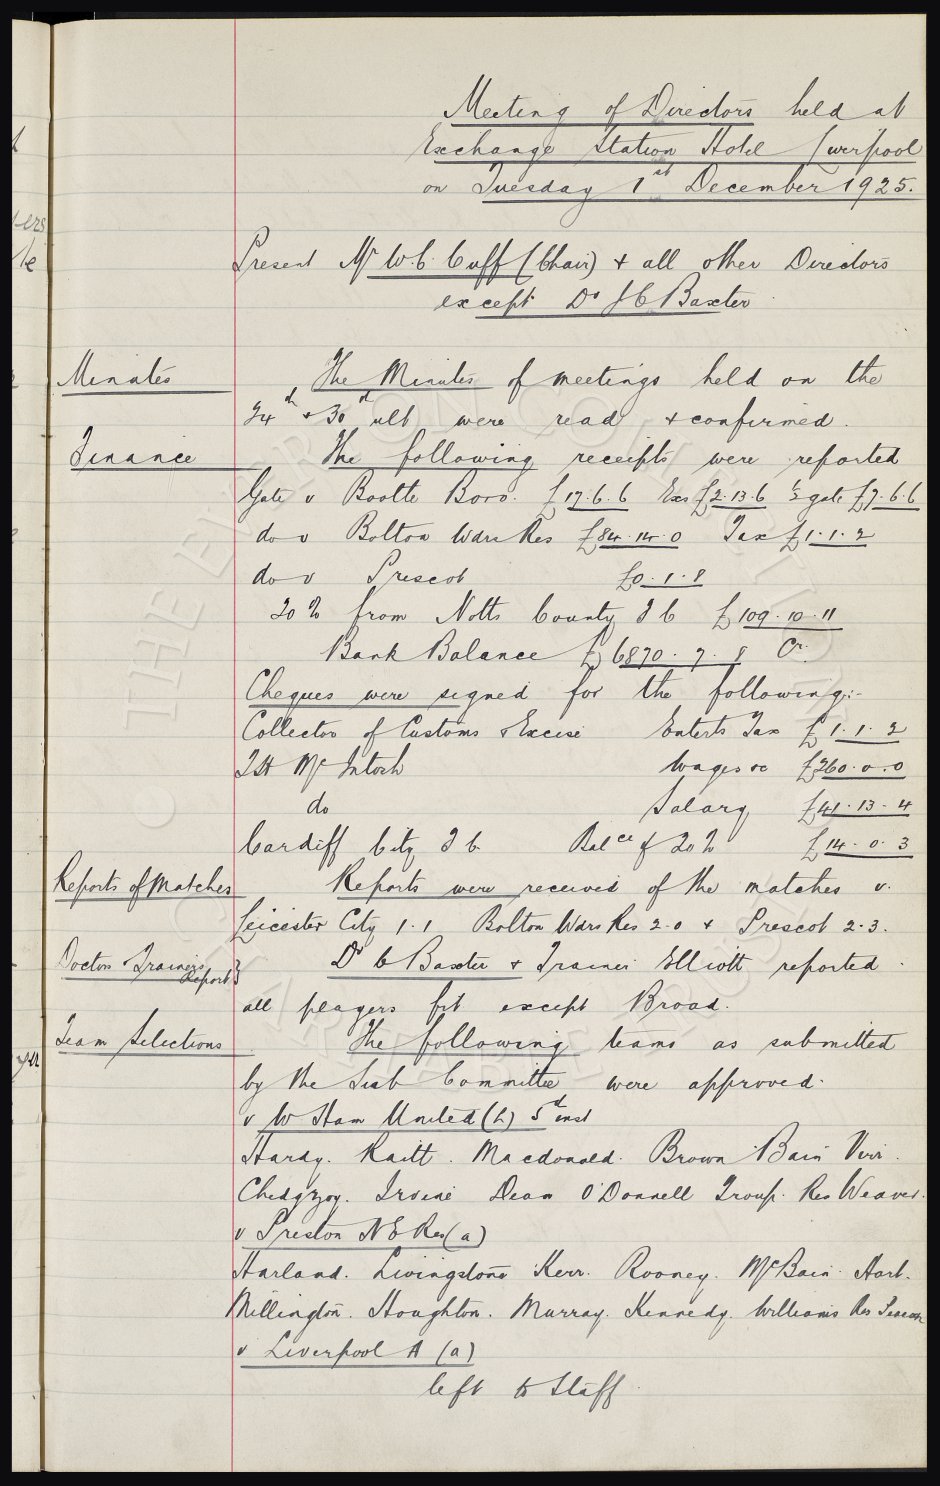 Meeting of Directors held at
Exchange Station Hotel Liverpool
on Tuesday 1st December 1925.
Present Mr W.C. Cuff (Chair) + all other Directors
except Dr J C Baxter
Minutes The Minutes of meetings held on the
24th + 30th ult were read + confirmed.
Finance The following receipts were reported
Gate v Bootle Boro. £17.6.6 Exs £2.13.6 ½ gate £7.6.6
do v Bolton Wdrs Res £84.14.0 Tax £1.1.2
do v Prescot £0.1.8
20% from Notts County F C £109.10.11
Bank Balance £6870.7.8 Cr.
Cheques were signed for the following:-
Collector of Customs & Excise Enterts Tax £1.1.2
T H McIntosh Wages &c £260.0.0
do Salary £41.13.4
Cardiff City F C Balce of 20% £14.0.3
Reports of Matches Reports were received of the matches v.
Leicester City 1.1 Bolton Wdrs Res 2.0 + Prescot 2.3.
Doctor Trainers Report } Dr C Baxter + Trainer Elliott reported
all players fit except Broad.
Team Selections The following teams as submitted
by the Sub Committee were approved.
v W Ham United (h) 5th inst
Hardy. Raitt. Macdonald. Brown Bain Virr.
Chedgzoy. Irvine Dean O'Donnell Troup. Res Weaver.
v Preston N E Res (a)
Harland. Livingstone Kerr. Rooney. McBain. Hart.
Millington. Houghton. Murray. Kennedy. Williams Res
v Liverpool A (a)
left to Staff
THE EVERTON COLLECTION
CHARITABLE TRUST